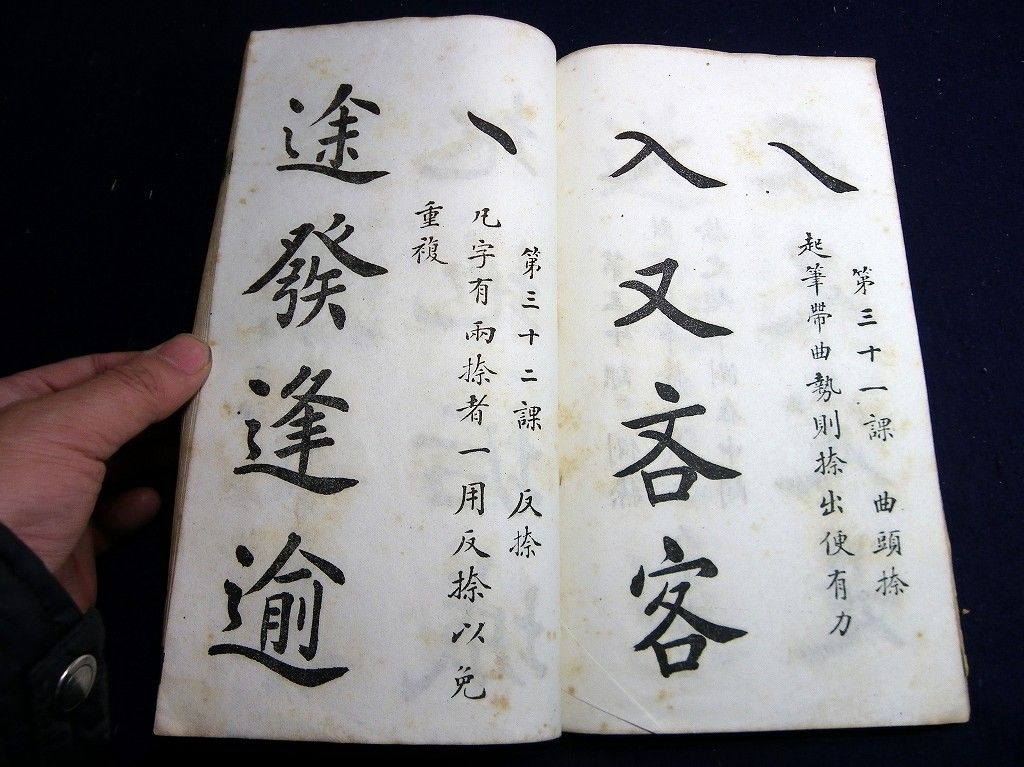 第三十一課　曲頭捺
起筆帶曲勢則捺出便有力
㇏
入又吝客
第三十二課　反捺
凡字有兩捺者一用反捺以免
重複
㇔
途發逢逾